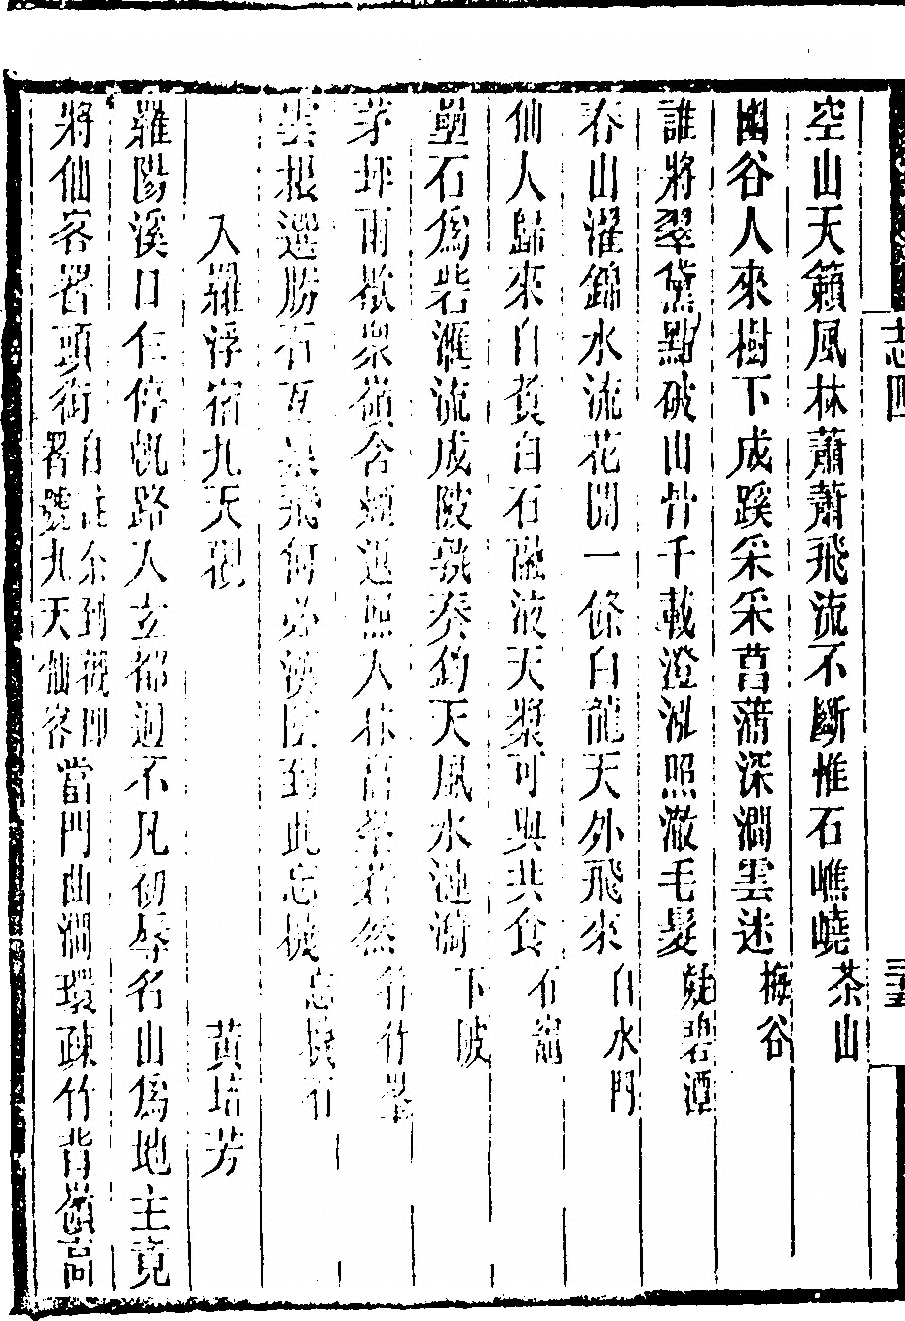 志四
三五
空山天籟風林蕭蕭飛流不斷惟石嶕嶢茶山
幽谷人來樹下成蹊采采菖蒲深澗雲迷梅谷
誰將翠黛點破山骨千載澄泓照澈毛髮碧潭
春山濯錦水流花開一條白龍天外飛來白水門
仙人歸來自煮白石融液天漿可與共食石
壘石為砦滙流成陂孰奏鈞天風水漣漪下陂
茅坪雨歇眾嶺含煙返照人衣蒼翠若然竹
雲根選勝石互飛何必漢陰到此忘機忘機石
入羅浮宿九天觀
黃培芳
羅陽溪口仁停帆路入玄都迥不凡初辱名山為地主竟
將仙客署頭銜自註余到觀即署號九天仙客當門曲澗環疎竹背嶺高